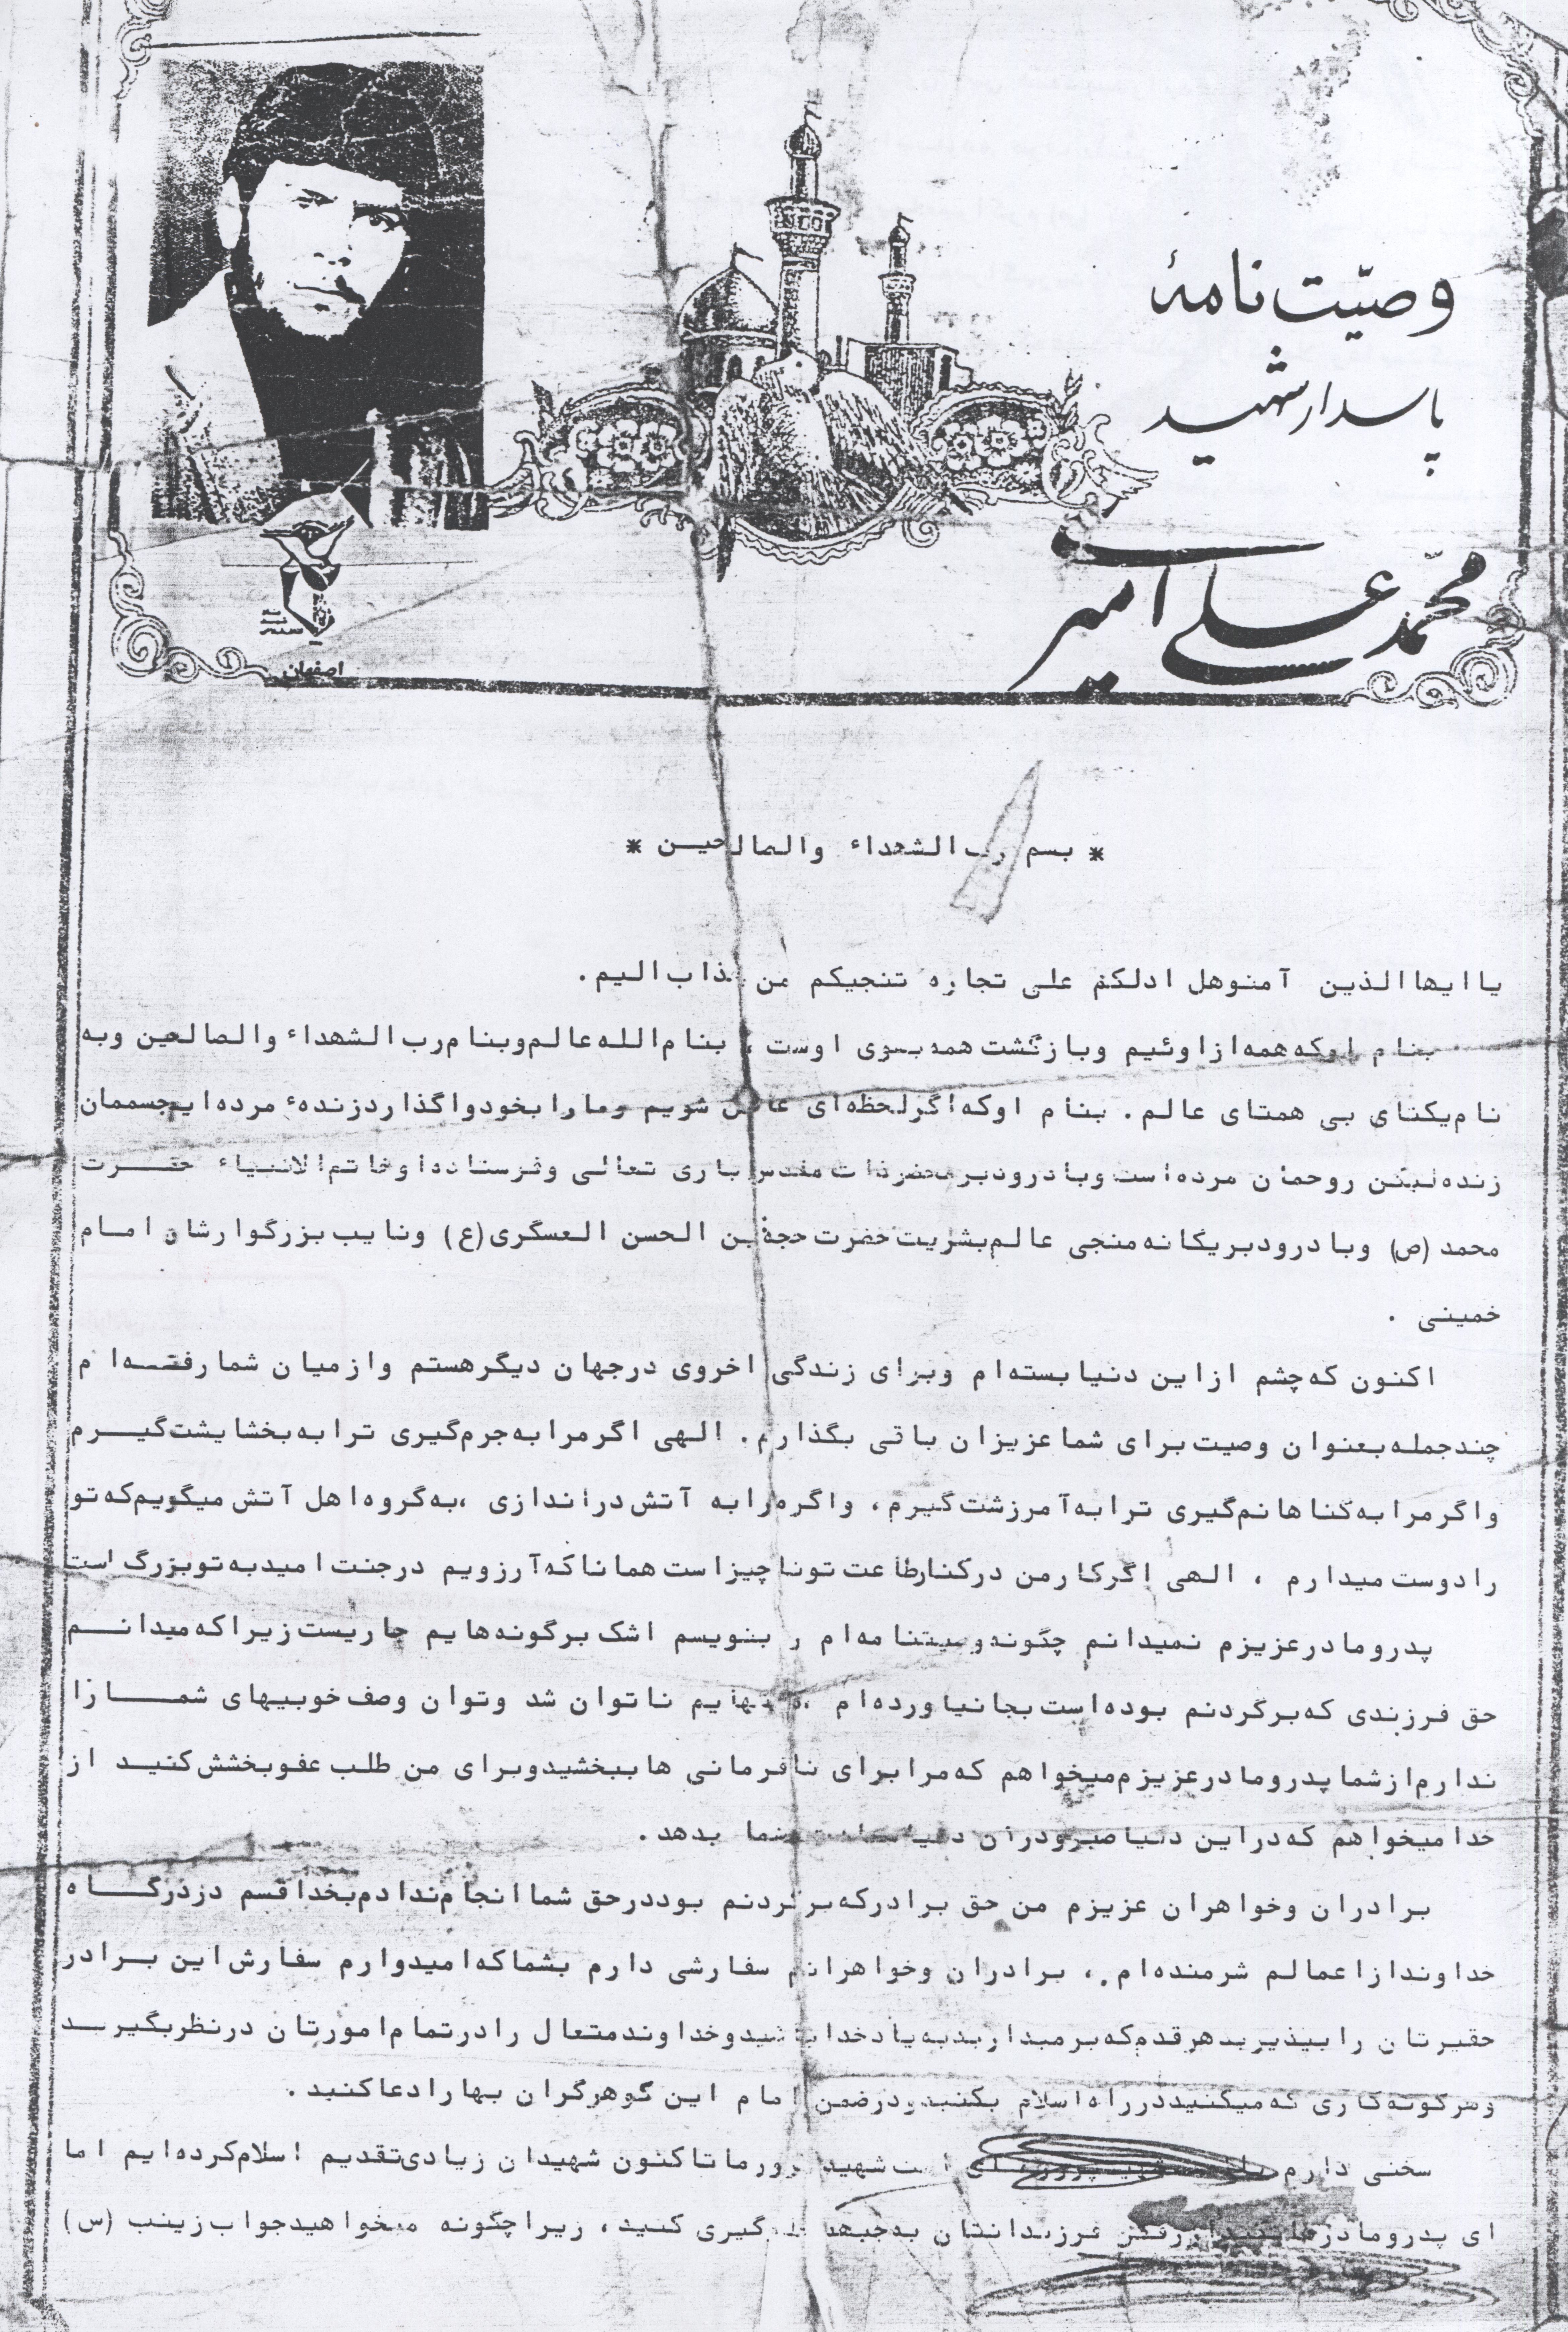 وصیّت نامهٔ
پاسدار شهید
محمّد علی امیری
اصفهان
* بسم رب الشهداء والصالحین *
یا ایها الذین آمنوهل ادلکم علی تجاره تنجیکم من عذاب الیم.
بنام اوکه همه از اوئیم وبازگشت همه بسوی اوست ، بنام الله عالم وبنام رب الشهداء والصالحین وبه
نام یکتای بی همتای عالم. بنام اوکه اگر لحظه‌ای غافل شویم وما را بخود واگذارد زندهء مرده ایم جسممان
زنده لیکن روحمان مرده است وبا درود بر محضر ذات مقدس باری تعالی وفرستاده او خاتم الانبیاء حضرت
محمد (ص) وبا درود بر یگانه منجی عالم بشریت حضرت حجة بن الحسن العسگری (ع) ونایب بزرگوارشان امام
خمینی .
اکنون که چشم از این دنیا بسته ام وبرای زندگی اخروی در جهان دیگر هستم واز میان شما رفته ام
چند جمله بعنوان وصیت برای شما عزیزان باقی بگذارم. الهی اگر مرا به جرم گیری ترا به بخشایشت گیرم
واگر مرا به گناهانم گیری ترا به آمرزشت گیرم، واگر مرا به آتش در اندازی ،به گروه اهل آتش میگویم که تو
را دوست میدارم ، الهی اگر کار من در کنار طاعت تو ناچیز است همانا که آرزویم در جنت امید به تو بزرگ است
پدر و مادر عزیزم نمیدانم چگونه وصیتنامه ام را بنویسم اشک بر گونه هایم جاریست زیرا که میدانم
حق فرزندی که بر گردنم بوده است بجا نیاورده ام ناتوان شد وتوان وصف خوبیهای شما را
ندارم از شما پدر و مادر عزیزم میخواهم که مرا برای نافرمانی ها ببخشید وبرای من طلب عفو بخشش کنید از
خدا میخواهم که در این دنیا صبر ودر ان دنیا شما بدهد.
برادران وخواهران عزیزم من حق برادر که بر گردنم بود در حق شما انجام ندادم بخدا قسم در درگاه
خداوند از اعمالم شرمنده ام ، برادران وخواهرانم سفارشی دارم بشما که امیدوارم سفارش این برادر
حقیرتان را بپذیرید هر قدم که بر میدارید به یاد خدا باشید وخداوند متعال را در تمام امورتان در نظر بگیرید
وهر گونه کاری که میکنید در راه اسلام بکنید ودر ضمن امام این گوهر گران بها را دعا کنید.
سخنی دارم ای امت شهید پرور ما تا کنون شهیدان زیادی تقدیم اسلام کرده ایم اما
ای پدر و مادر فرزندانتان به جبهه جلوگیری کنید، زیرا چگونه میخواهید جواب زینب (س)